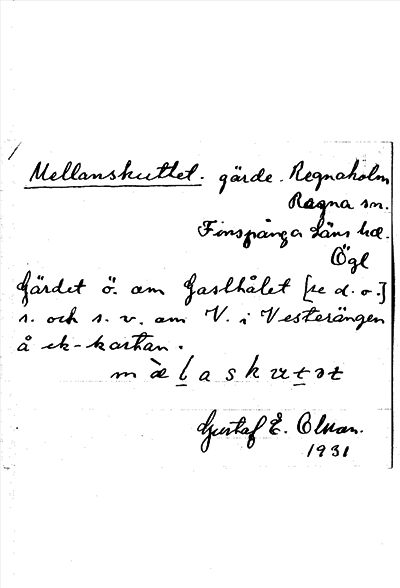 Mellanskuttet. gärde. Regnaholm
Regna sn.
Finspånga Läns hd.
Ögl
Gärdet ö. om Gaslhålet [se d. o.]
s. och s. v. om V. i Vesterängen
å ek-kartan.
m ὰ l a s k ɯ t ə t
Gustaf E. Olsson.
1931